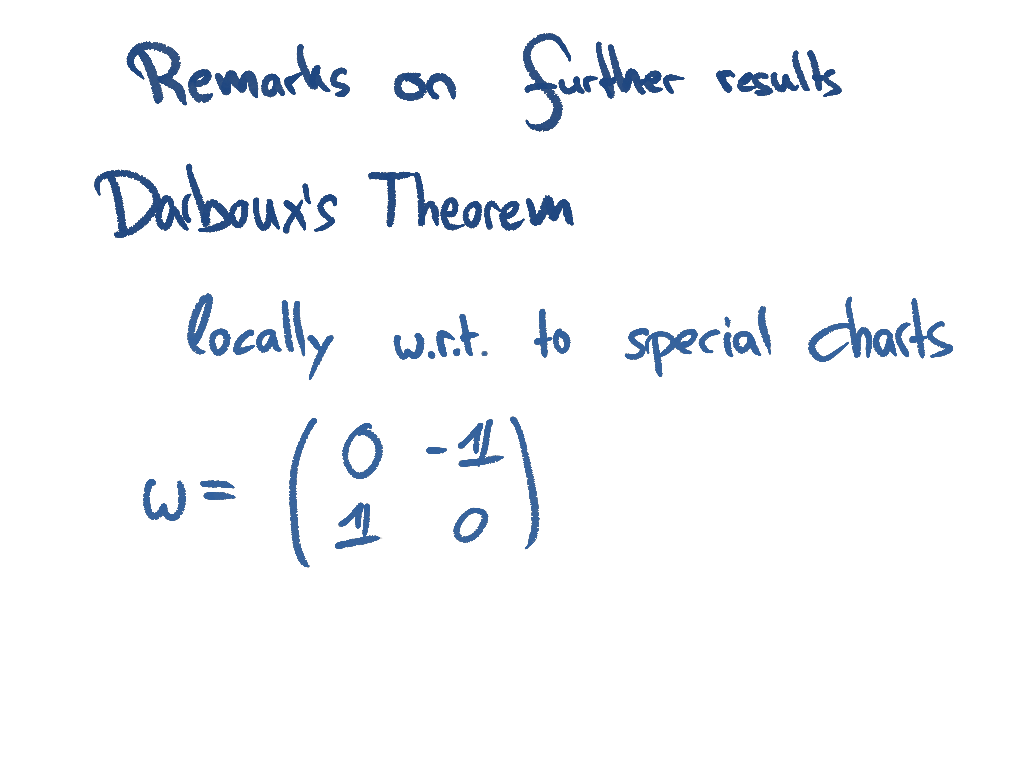 Remarks on further results
Darboux's Theorem
locally w.r.t. to special charts
ω = ( 0 -𝟙
𝟙 0 )